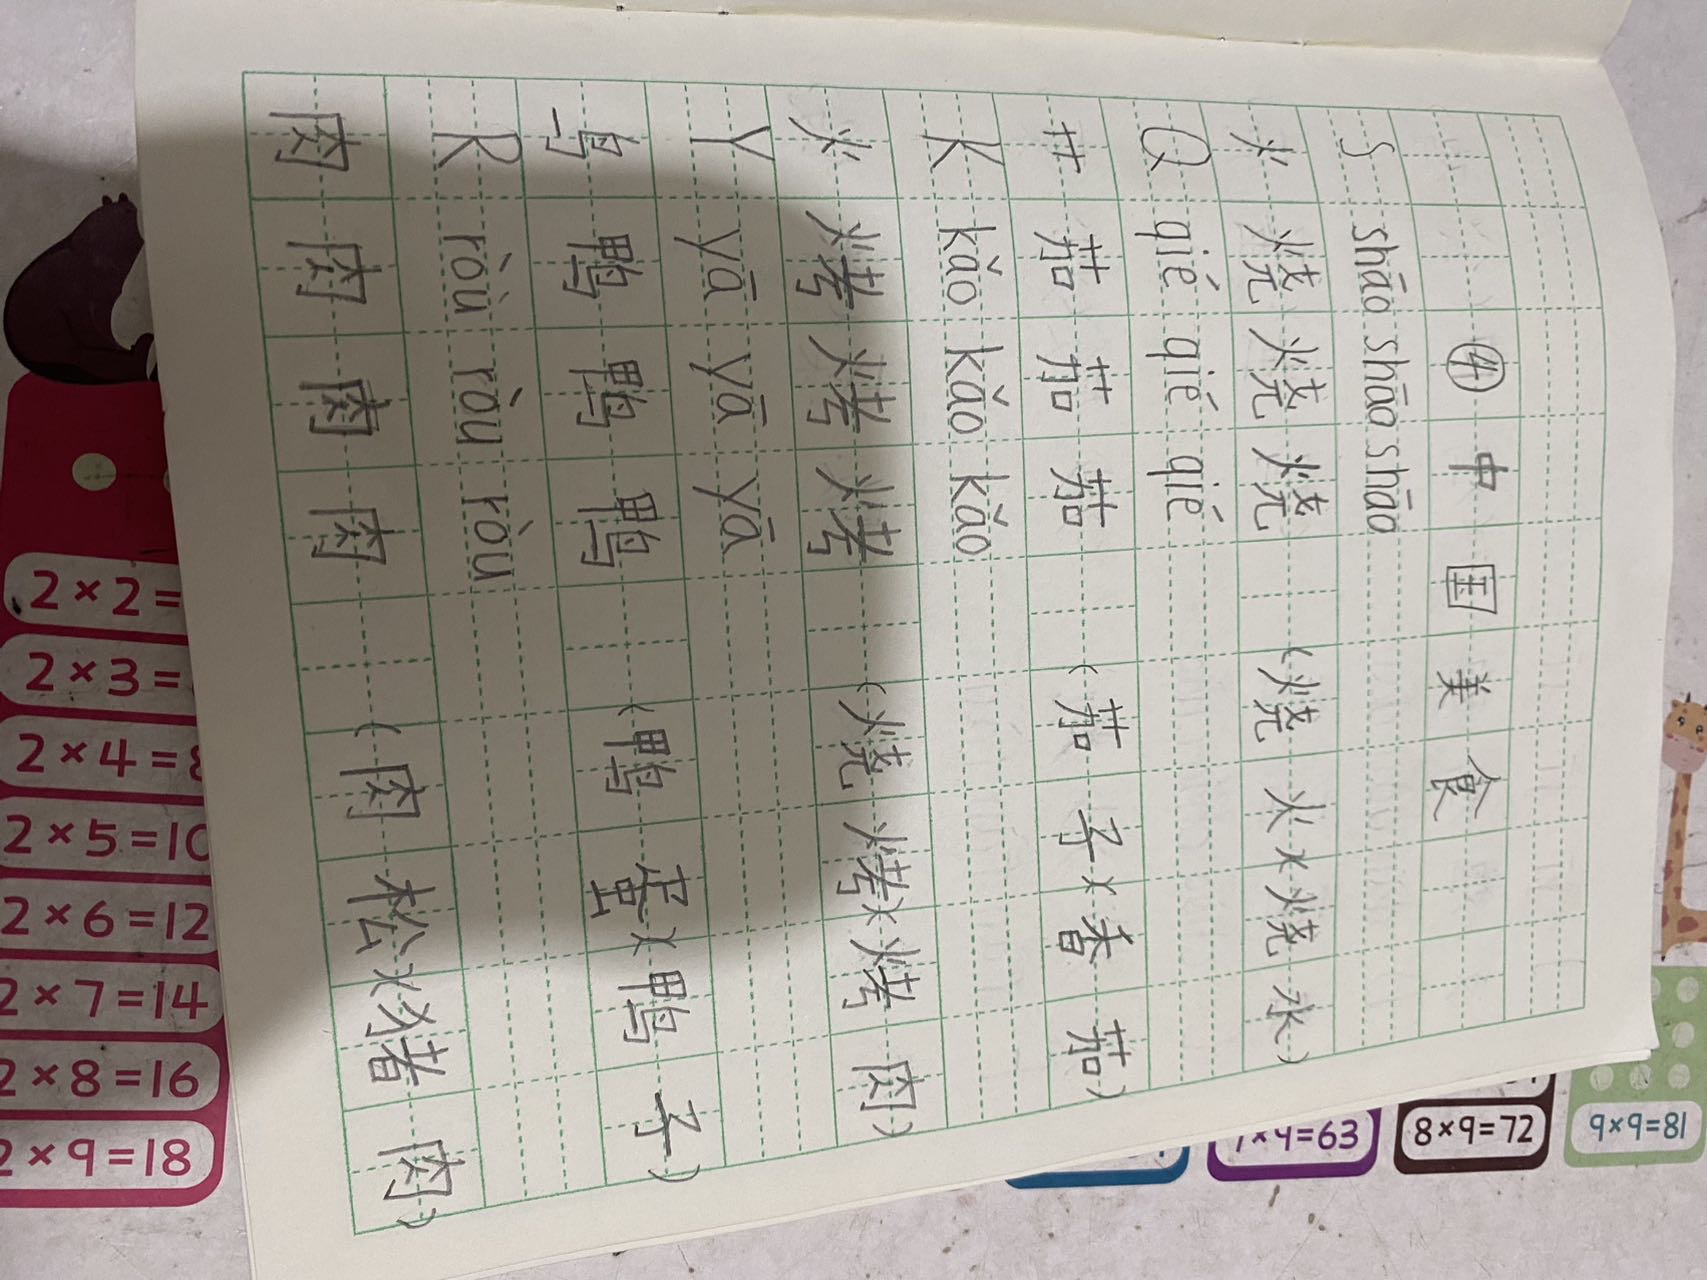 ④ 中国美食
S shāo shāo shāo
火 烧 烧 烧 (烧火)(烧水)
Q qié qié qié
艹 茄 茄 茄 (茄子)(香茄)
K kǎo kǎo kǎo
火 烤 烤 烤 (烧烤)(烤肉)
Y yā yā yā
鸟 鸭 鸭 鸭 (鸭蛋)(鸭子)
R ròu ròu ròu
肉 肉 肉 肉 (肉松)(猪肉)
2×2=
2×3=
2×4=8
2×5=10
2×6=12
2×7=14
2×8=16
2×9=18
7×9=63
8×9=72
9×9=81